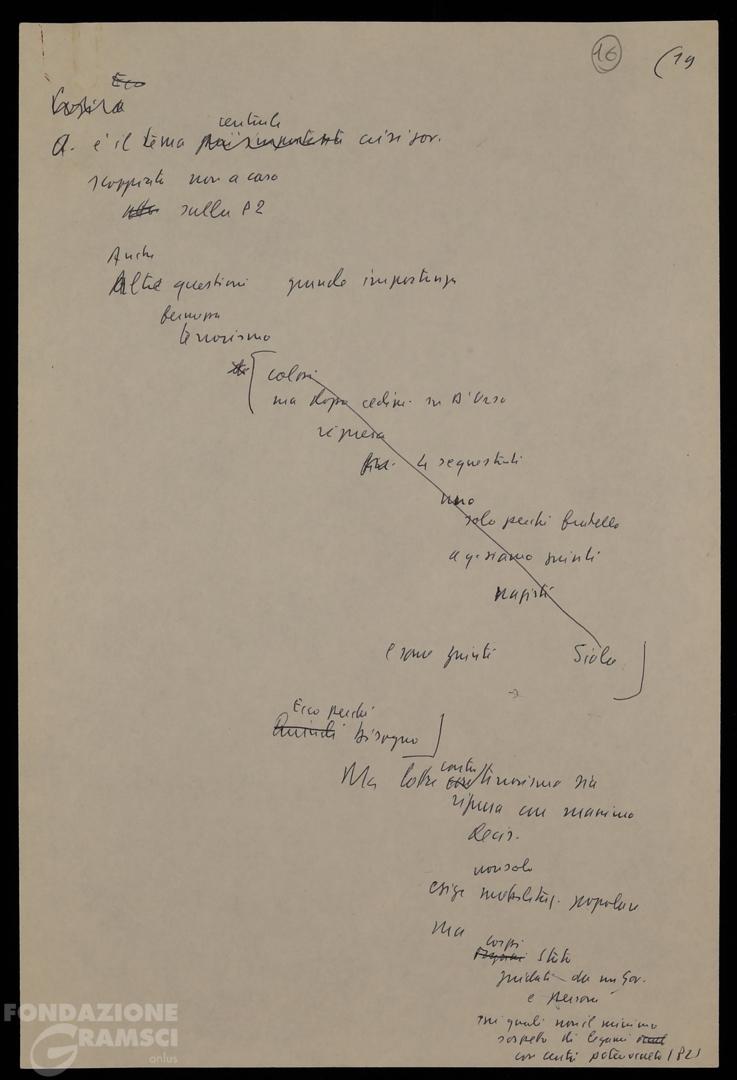 16
(19
Ecco
centrale
Q. è il tema più importante crisi gov.
scoppiata non a caso
sulla P2
Anche
Altre questioni grande importanza
terrorismo
colpi
ma dopo cedim. su D'Urso
ripresa
4 sequestrati
uno
solo perché fratello
e sono giunti
Ecco perché
Quindi Bisogno
contro
Ma lotta terrorismo sia
ripresa con massima
decis.
non solo
esige mobilitaz. popolare
Ma
corpi
Stato
guidati da un Gov.
e persone
sui quali non il minimo
sospetto di legami
con centri potere occulto (P2)
FONDAZIONE
GRAMSCI
onlus